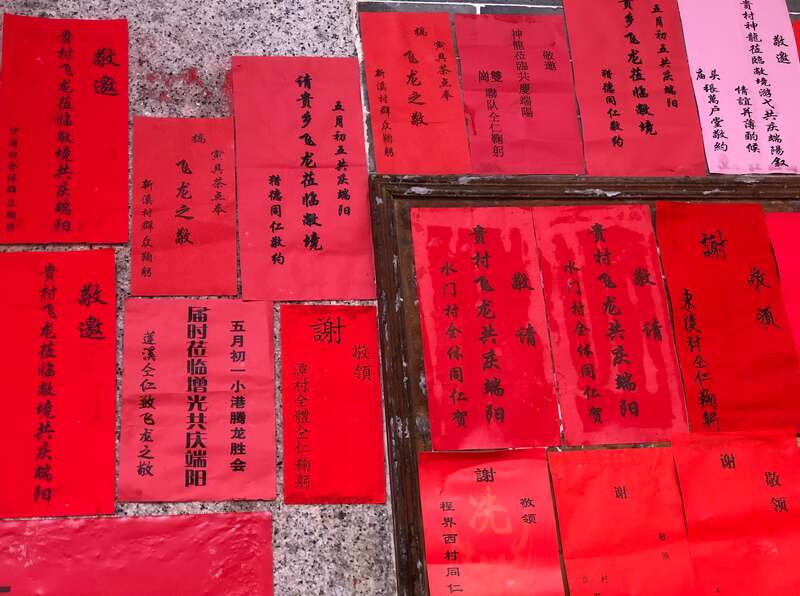 敬邀
贵村飞龙莅临敝境共庆端阳
沙溪村全体群众鞠躬
槁
窗具茶点奉
飞龙之敬
新溪村群众鞠躬
五月初五共庆端阳
请贵乡飞龙莅临敝境
猎德同仁敬约
槁
窗具茶点奉
飞龙之敬
新溪村群众鞠躬
敬邀
神龍莅临共慶端陽
雙崗聯队仝仁鞠躬
五月初五共庆端阳
贵乡飞龙莅临敝境
猎德同仁敬约
敬邀
贵村神龍莅临敝境游弋共庆端陽叙
情誼并薄酌候
头
庙
張萬户堂敬约
敬邀
贵村飞龙莅临敝境共庆端阳
五月初一小港腾龙胜会
届时莅临增光共庆端阳
莲溪仝仁致飞龙之敬
敬領
謝
潭村全體仝仁鞠躬
敬请
贵村飞龙共庆端阳
水门村全体同仁贺
敬请
贵村飞龙共庆端阳
水门村全体同仁贺
敬领
謝
東溪村仝仁鞠躬
敬領
謝
程界西村同仁
敬領
谢
村
敬領
谢